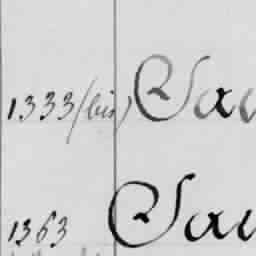 1333 (bis) Sau
1363 Sau